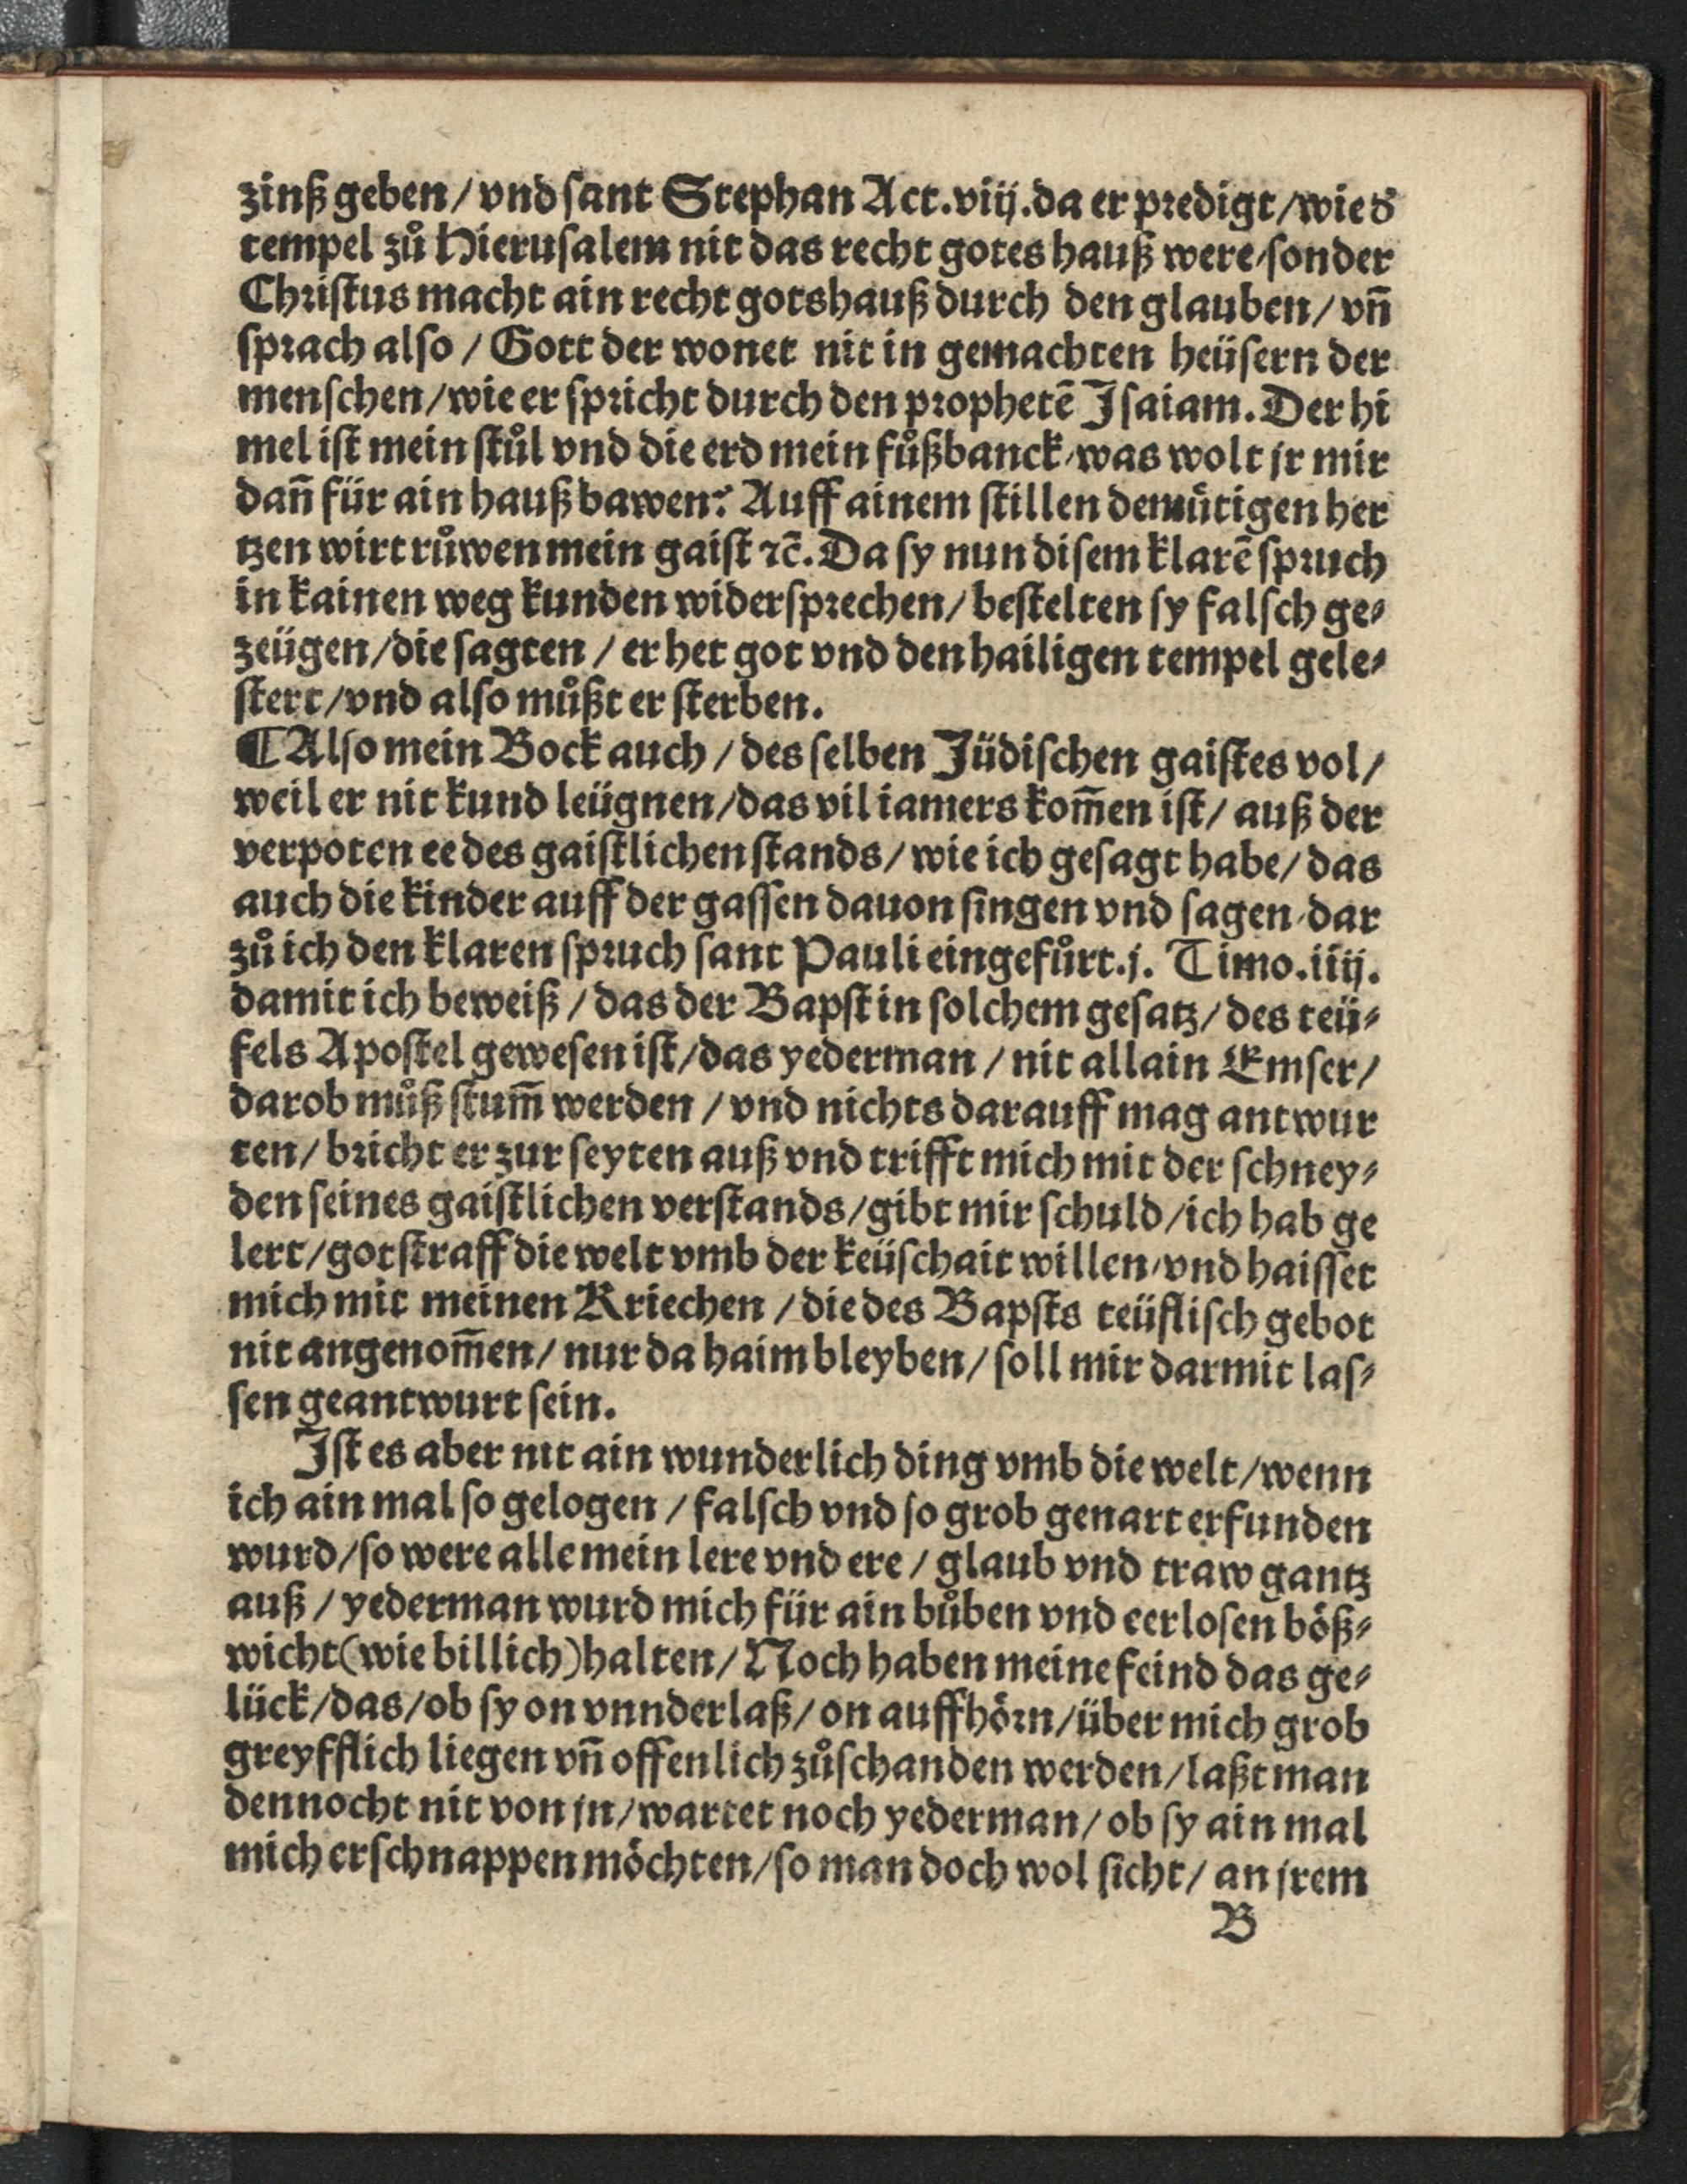 zinß geben / vnd ſant Stephan Act.viij.da er predigt / wie d'
tempel zů Hieruſalem nit das recht gotes hauß were / ſonder
Chriſtus macht ain recht gotshauß durch den glauben / vn̄
ſprach alſo / Gott der wonet nit in gemachten heüſern der
menſchen / wie er ſpricht durch den prophetē Iſaiam. Der hi
mel iſt mein ſtůl vnd die erd mein fůßbanck / was wolt jr mir
dañ für ain hauß bawen? Auff ainem ſtillen demütigen her
tzen wirt růwen mein gaiſt ꝛc̄. Da ſy nun diſem klarē ſpruch
in kainen weg kunden widerſprechen / beſtelten ſy falſch ge⸗
zeügen / die ſagten / er het got vnd den hailigen tempel gele⸗
ſtert / vnd alſo můßt er ſterben.
¶ Alſo mein Bock auch / des ſelben Jüdiſchen gaiſtes vol /
weil er nit kund leügnen / das vil iamers kom̄en iſt / auß der
verpoten ee des gaiſtlichen ſtands / wie ich geſagt habe / das
auch die kinder auff der gaſſen dauon ſingen vnd ſagen / dar
zů ich den klaren ſpruch ſant Pauli eingefůrt. j. Timo.iiij.
damit ich beweiß / das der Bapſt in ſolchem geſatz / des teü⸗
fels Apoſtel geweſen iſt / das yederman / nit allain Emſer /
darob můß ſtum̄ werden / vnd nichts darauff mag antwur
ten / bricht er zur ſeyten auß vnd trifft mich mit der ſchney⸗
den ſeines gaiſtlichen verſtands / gibt mir ſchuld / ich hab ge
lert / got ſtraff die welt vmb der keüſchait willen / vnd haiſſet
mich mit meinen Kriechen / die des Bapſts teüfliſch gebot
nit angenom̄en / nur da haim bleyben / ſoll mir darmit laſ⸗
ſen geantwurt ſein.
Iſt es aber nit ain wunderlich ding vmb die welt / wenn
ich ain mal ſo gelogen / falſch vnd ſo grob genart erfunden
wurd / ſo were alle mein lere vnd ere / glaub vnd traw gantz
auß / yederman wurd mich für ain bůben vnd eerloſen böß⸗
wicht (wie billich) halten / Noch haben meine feind das ge⸗
lück / das / ob ſy on vnnderlaß / on auffhörn / über mich grob
greyfflich liegen vn̄ offenlich zůſchanden werden / laßt man
dennocht nit von jn / wartet noch yederman / ob ſy ain mal
mich erſchnappen möchten / ſo man doch wol ſicht / an jrem
B